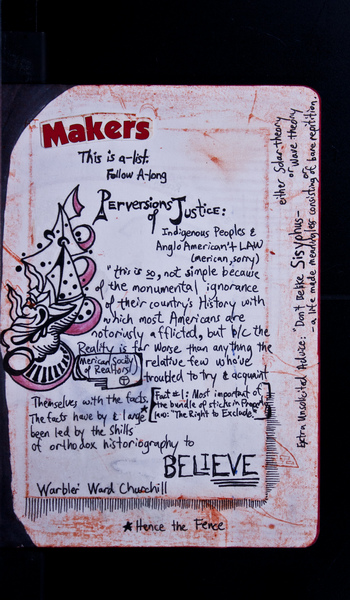 Makers
This is a-list:
Follow A-long
Perversions
of Justice:
Indigenous Peoples &
Anglo American't LAW
(merican, sorry)
"this is so, not simple because
of the monumental ignorance
of their country's History with
which most Americans are
notoriously afflicted, but b/c the
Reality is far worse than anything the
merican Society
of Realtors!
relative few who've
troubled to try & acquaint
Themselves with the facts.
Fact #1: Most important of
the bundle of sticks in Property
Law: "The Right to Exclude."
The facts have by & large
been led by the Shills
of orthodox historiography to
BELIEVE
Warbler Ward Churchill
★Hence the Fence
Extra Unsolicited Advice: "Don't Sisyphus-
either Solar theory
or Wave theory
or
-a life made meaningless consisting of bare repitition.